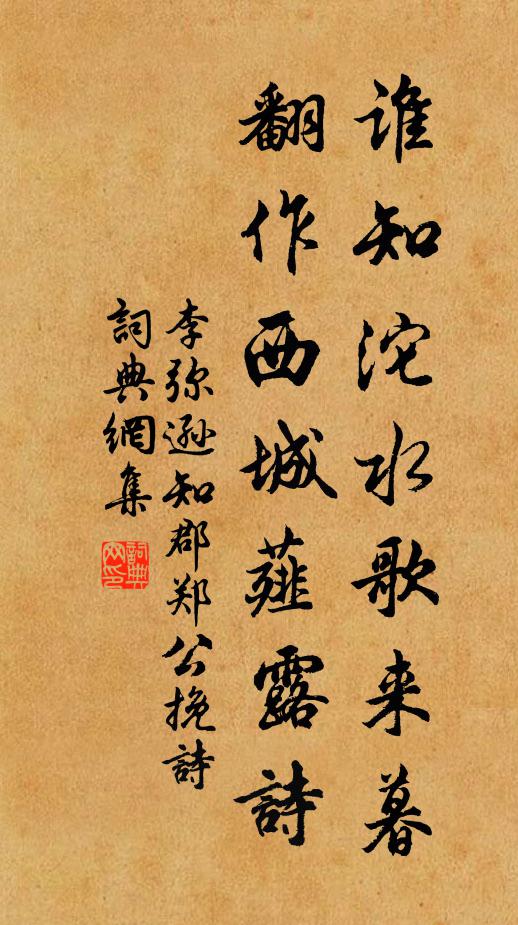 谁知沱水歌来暮
翻作西城薤露詩
李弥遜知郡郑公挽詩
詞典網集
詞典網印